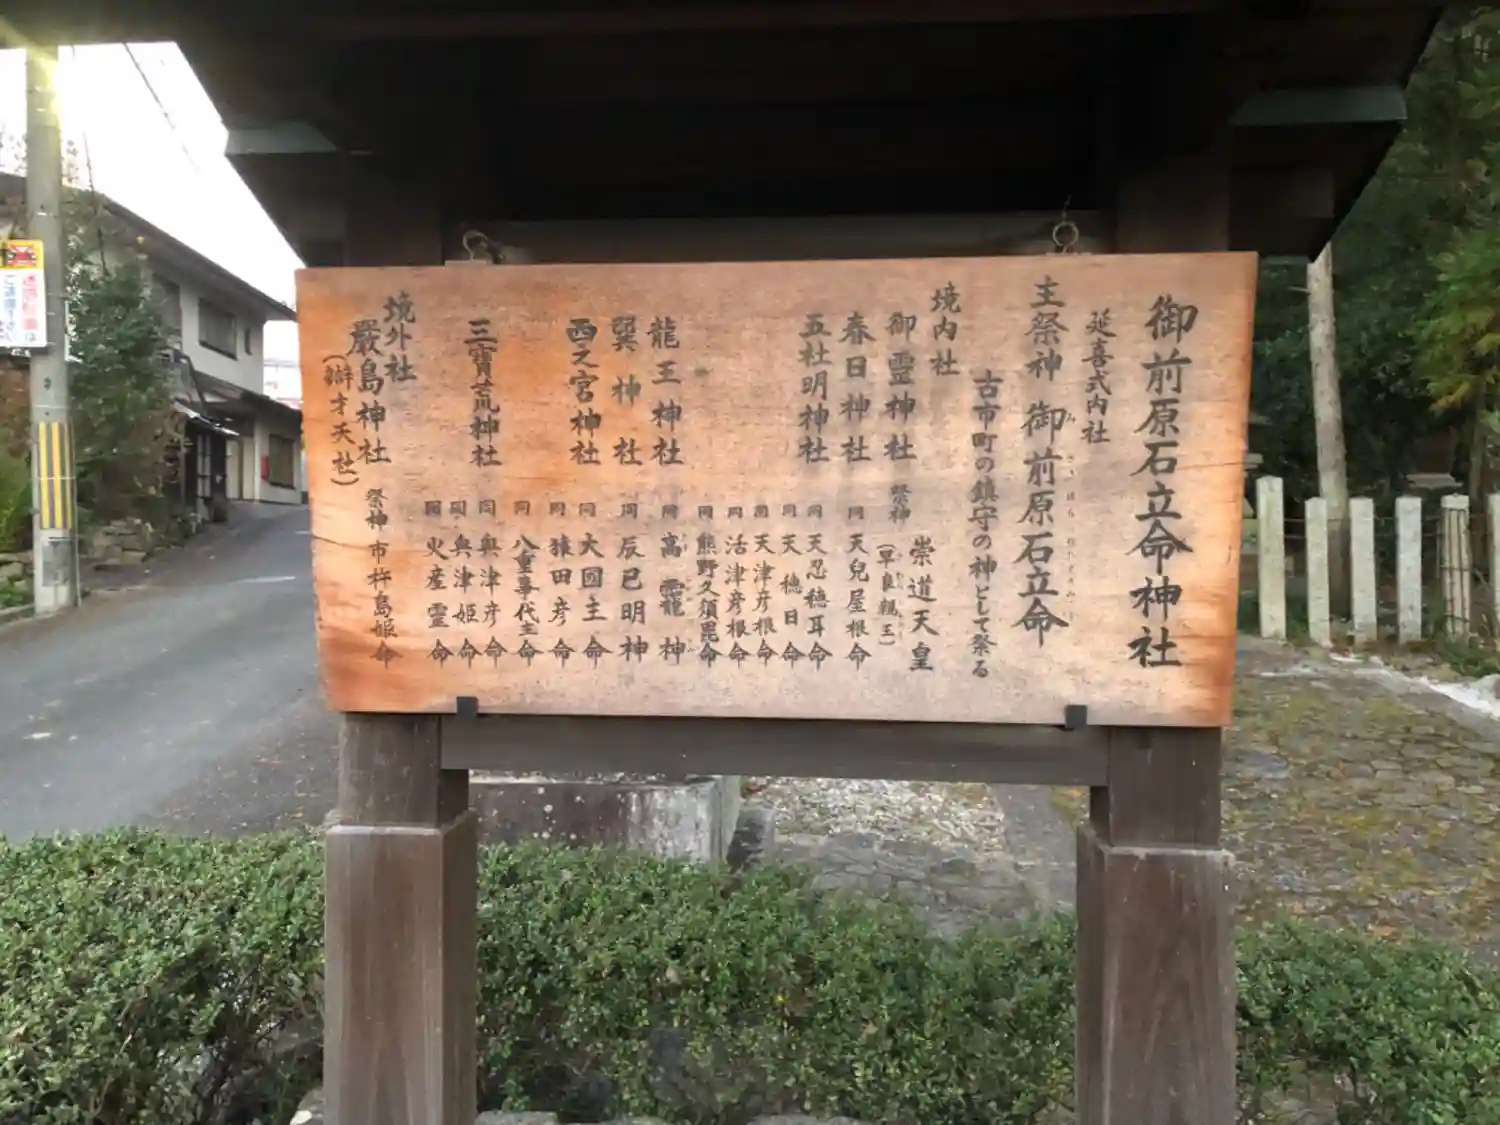 御前原石立命神社
延喜式内社
主祭神 御前原石立命
古市町の鎮守の神として祭る
境内社
御霊神社 祭神 崇道天皇
(早良親王)
春日神社 同 天兒屋根命
五社明神社 同 天忍穂耳命
同 天穂日命
同 天津彦根命
同 活津彦根命
同 熊野久須毘命
龍王神社 同 高龗神
巽神社 同 辰巳明神
西之宮神社 同 大国主命
同 猿田彦命
同 八重事代主命
三寶荒神社 同 奥津彦命
同 奥津姫命
同 火産霊命
境外社
厳島神社 祭神 市杵島姫命
(辦才天社)